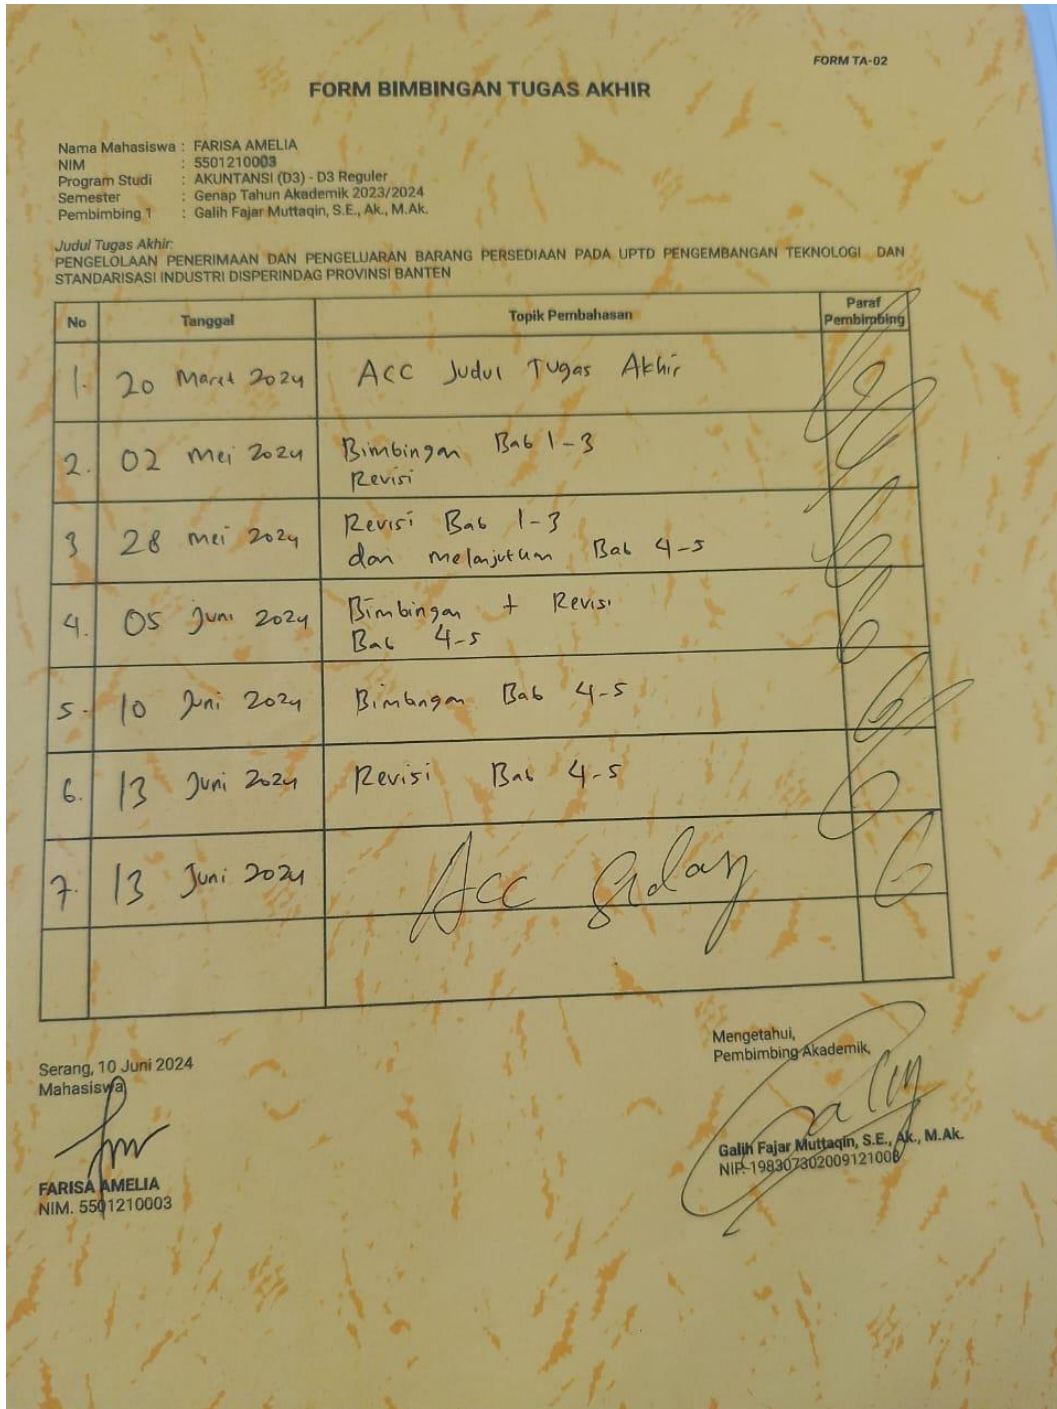 FORM TA-02
FORM BIMBINGAN TUGAS AKHIR
Nama Mahasiswa : FARISA AMELIA
NIM : 5501210003
Program Studi : AKUNTANSI (D3) - D3 Reguler
Semester : Genap Tahun Akademik 2023/2024
Pembimbing 1 : Galih Fajar Muttaqin, S.E., Ak., M.Ak.
Judul Tugas Akhir:
PENGELOLAAN PENERIMAAN DAN PENGELUARAN BARANG PERSEDIAAN PADA UPTD PENGEMBANGAN TEKNOLOGI DAN
STANDARISASI INDUSTRI DISPERINDAG PROVINSI BANTEN
No Tanggal Topik Pembahasan Paraf Pembimbing
1. 20 Maret 2024 ACC Judul Tugas Akhir
2. 02 Mei 2024 Bimbingan Bab 1-3
Revisi
3 28 Mei 2024 Revisi Bab 1-3
dan melanjutkan Bab 4-5
4. 05 Juni 2024 Bimbingan + Revisi
Bab 4-5
5. 10 Juni 2024 Bimbingan Bab 4-5
6. 13 Juni 2024 Revisi Bab 4-5
7. 13 Juni 2024 Acc Sidang
Serang, 10 Juni 2024
Mahasiswa
FARISA AMELIA
NIM. 5501210003
Mengetahui,
Pembimbing Akademik,
Galih Fajar Muttaqin, S.E., Ak., M.Ak.
NIP. 198307302009121008